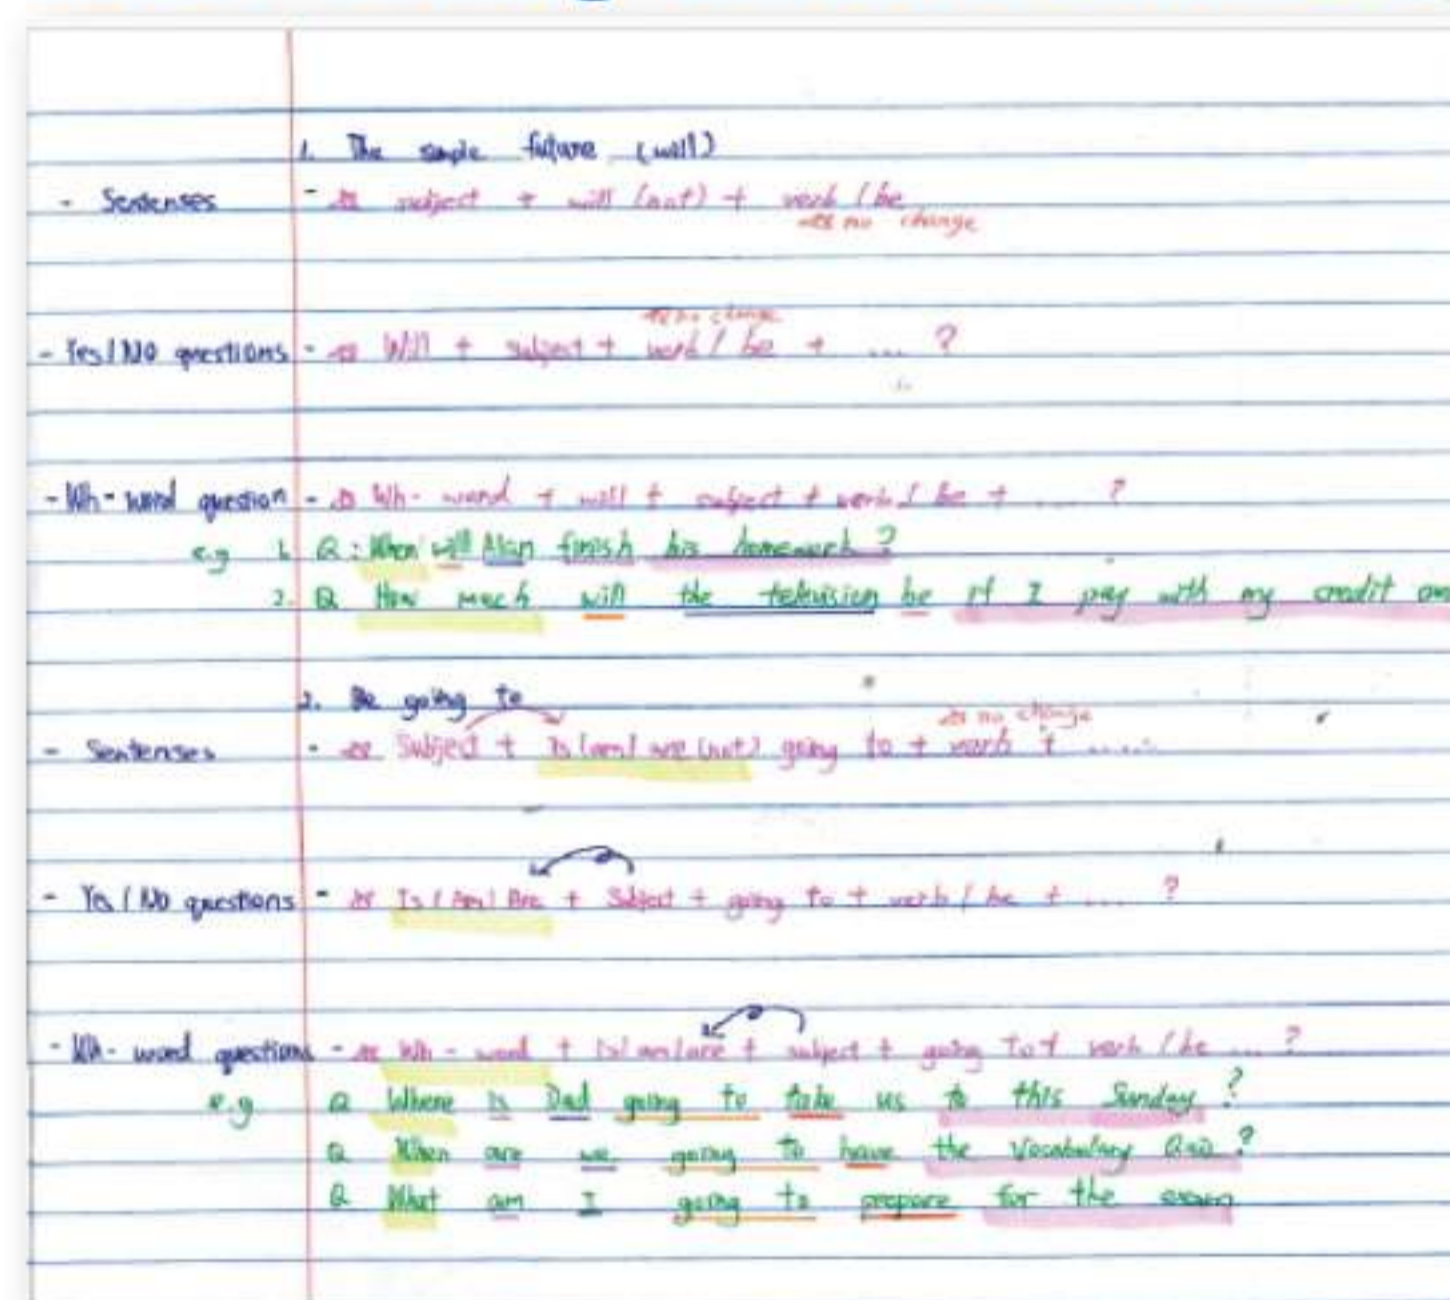 1. The simple future (will)
- Sentenses - subject + will (not) + verb / be
no change
no change
- Yes / No questions - Will + subject + verb / be + ... ?
- Wh- word question - Wh- word + will + subject + verb / be + .... ?
e.g 1. Q: When will Alan finish his homework?
2. Q How much will the television be if I pay with my credit
2. Be going to
no change
- Sentenses - Subject + Is / am / are (not) going to + verb + ......
- Yes / No questions - Is / Am / Are + Subject + going to + verb / be + .... ?
- Wh- word questions - Wh- word + Is / am / are + subject + going to + verb / be ... ?
e.g Q Where is Dad going to take us to this Sunday?
Q When are we going to have the Vocabulary ?
Q What am I going to prepare for the exam